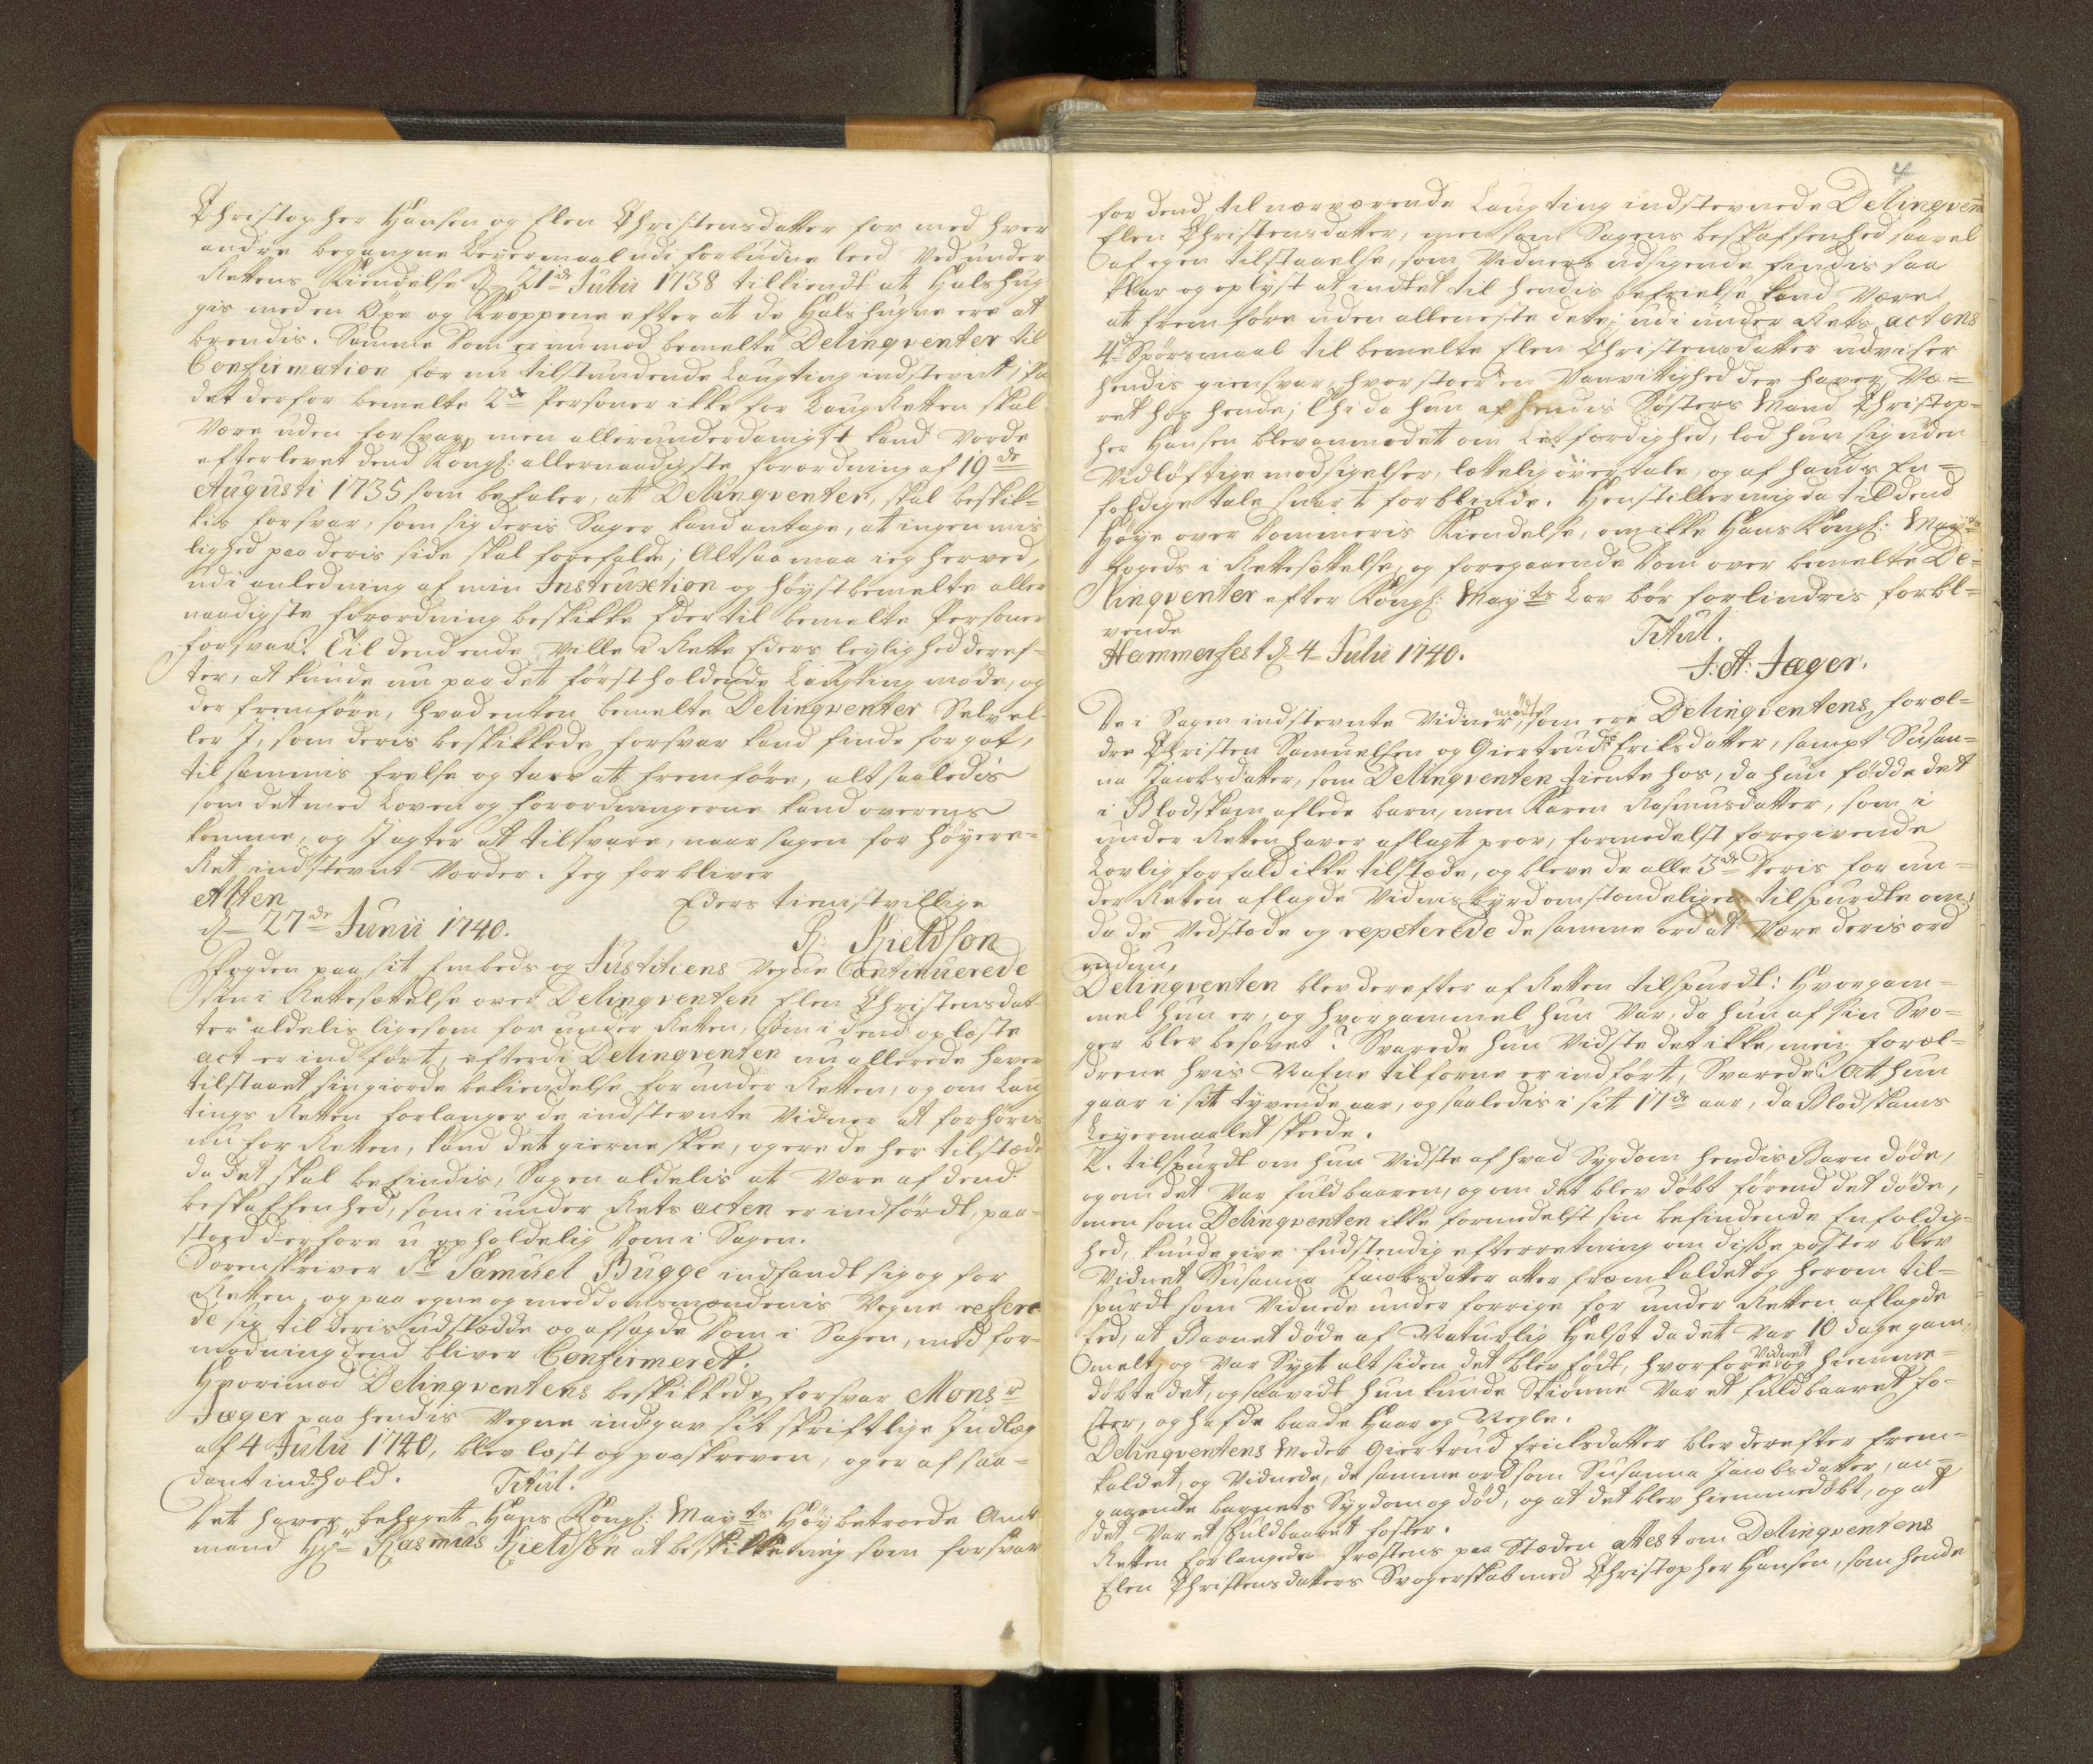 Christopher Hansen og Elen Christensdatter for med hver
andre begangne Leyermaal udi forbudne leed Ved under
Rettens Kiendelse d. 21de Julii 1738 tilkiendt at Halshug
gis med en Öxe og Kroppene efter at de Halshugne ere at
brendis. Samme Dom er nu mod bemelte Delinqventer til
Confirmation for nu tilstundende Laugting indstevnt; Paa
det derfor bemelte 2de Personer ikke for LaugRetten skal
Være uden forsvar, men allerunderdanigst kand Vorde
efterlevet dend Kongl: allernaadigste forordning af 19de
Augusti 1735 som befaler, at Delinqventer, skal beskik-
kis forsvar, som sig deris Sager kand antage, at ingen mis
lighed paa deris side skal forefalde; Altsaa maa ieg herved,
udi anledning af min Instruxtion og höystbemelte aller
naadigste forordning beskikke Eder til bemelte Personer
forsvar: Til dend ende Ville I Rette Eders leylighed deref-
ter, at kunde nu paa det först holdende Laugting möde, og
der fremföre, hvad enten bemelte Delinqventer Selv el-
ler I, som deris beskikkede forsvar kand finde forgot,
til sammis frelse og tarv at fremföre, alt saaledis
som det med Loven og forordningerne kand overens
komme, og I agter at tilsvare, naar sagen for höyere-
Ret indstevnt Vorder. Jeg forbliver
Alten
Eders tienistvillige
d. 27de Junii 1740.
R: Kieldsön
Fogden paa sit Embeds og Justitiens Vegne Continuerede
sin i Rettesættelse over Delinqventen Elen Christensdat
ter aldelis ligesom for under Retten, som i dend oplæste
act er indfört, efterdi Delinqventen nu allerede haver
tilstaaet sin giorde bekiendelse for under Retten, og om Lau
tings Retten forlanger de indstevnte Vidner at forhöris
nu for Retten, kand det gierne skee, og ere de her tilstæde
da det skal befindis, Sagen aldelis at Være af dend
beskaffenhed, som i under Rets acten er indfördt, paa-
stod derfore u opholdelig Dom i Sagen.
Sorenskriver Sr. Samuel Bugge indfandt sig og for
Retten, og paa egne og meddomsmændenis Vegne refere
de sig til deris udstædde og afsagde Dom i Sagen, med for-
modning dend bliver Confirmeret.
Hvorimod Delinqventens beskikkede forsvar Monsr
Jæger paa hendis Vegne indgav sit skriftlige Indlæg
af 4 Julii 1740, blev læst og paaskreven, og er af saa-
dant indhold.
Titul.
Det haver behaget Hans Kongl: Mayts Höybetroede Amt
mand Hr Rasmus Kieldsön at beskikke mig som forsvar
4
for dend til nærværende Laugting indstevnede Delinqvent
Elen Christensdatter, men som Sagens beskaffenhed saavel
af egen tilstaaelse, som Vidners udsigende findis saa
klar og oplyst at indtet til hendis befrielse kand Være
at fremföre uden alleneste dette; udi under Rets actens
4de Spörsmaal til bemelte Elen Christensdatter udviser
hendis giensvar, hvor stoer en Vanvitighed der haver Væ-
ret hos hende; Thi da hun af hendis Sösters Mand Christop-
her Hansen blev anmodet om Letfærdighed, lod hun sig uden
Vidlöftige modsigelser, lættelig övertale, og af hands Een-
foldige tale snart forblinde. Henstiller mig da til dend
Höye over Dommeris Kiendelse, om ikke Hans Kongl: Mayts
Fogeds i Rettesættelse, og foregaaende Dom over bemelte De-
linqventer efter Kongl: Mayts Lov bör forlindris forbl-
vende
Titul.
Hammerfest d. 4 Julii 1740.
J: A: Jæger.
De i Sagen indstevnte Vidner mödte, som ere Delinqventens foræl-
dre Christen Samuelsen og Giertrud Eriksdatter, sampt Susan-
na Jacobsdatter, som Delinqventen tiente hos, da hun födde det
i Blodskam aflede barn, men Karen Rasmusdatter, som i
under Retten haver aflagt prov, formedelst foregivende
Lovlig forfald ikke tilstæde, og bleve de alle 3de Deris for un-
der Retten aflagde Vidnisbyrd omstændeligen tilspurdte om,
da de Vedstode og repeterede de samme ord at Være deris ord
endnu,
Delinqventen blev derefter af Retten tilspurdt: Hvor gam-
mel hun er, og hvor gammel hun Var, da hun af sin Svo-
ger blev besovet? Svarede hun Vidste det ikke, men foræl-
drene hvis Nafne tilforne er indfört, Svarede: at hun
gaar i sit tyvende aar, og saaledis i sit 17de aar, da Blodskams
Leyermaalet skeede.
2. tilspurdt om hun Vidste af hvad Sygdom hendis Barn döde,
og om det Var fuldbaaren, og om det blev döbt förend det döde,
men som Delinqventen ikke formedelst sin befindende Enfoldig-
hed, kunde give fuldstendig efterretning om disse poster blev
Vidnet Susanna Jacobsdatter atter fremkaldet og herom til-
spurdt som Vidnede under forrige for under Retten aflagde
Eed, at Barnet döde af Naturlig Helsot da det Var 10 dage gam-
melt, og Var Sygt alt siden det blev födt, hvorfore Vidnet og hiemme-
döbte det, og saavidt hun kunde Skiönne Var et fuldbaaret fo-
ster, og hafde baade Haar og Negle.
Delinqventens Moder Giertrud Eriksdatter blev derefter frem-
kaldet, og Vidnede, de samme ord som Susanna Jacobsdatter, an-
gaaende barnets Sygdom og död, og at det blev hiemmedöbt, og at
det Var et fuldbaaret foster.
Retten forlangede Præstens paa Stæden attest om Delinqventens
Elen Christensdatters Svogerskab med Christopher Hansen, som hende